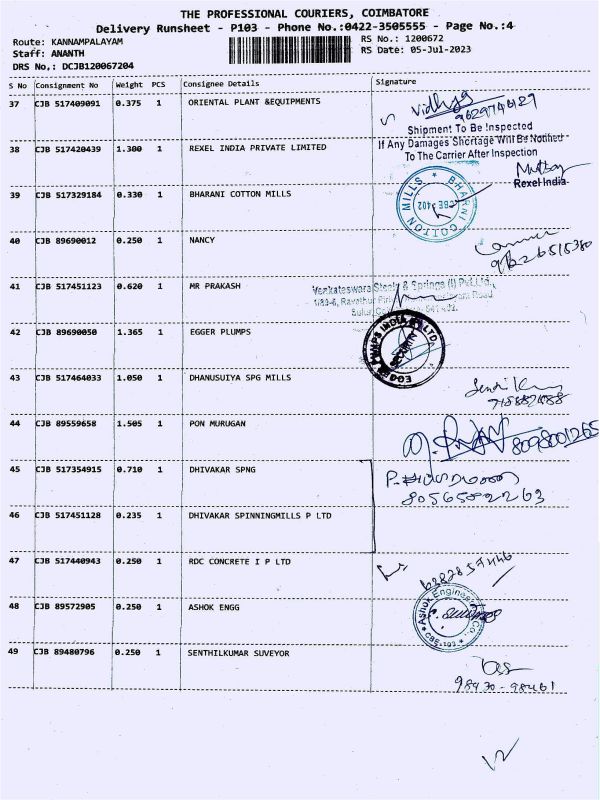 THE PROFESSIONAL COURIERS, COIMBATORE
Delivery Runsheet - P103 - Phone No.:0422-3505555 - Page No.:4
Route: KANNAMPALAYAM
RS No.: 1200672
Staff: ANANTH
RS Date: 05-Jul-2023
DRS No,: DCJB120067204
S No Consignment No Weight PCS Consignee Details Signature
37 CJB 517409091 0.375 1 ORIENTAL PLANT &EQUIPMENTS
Vidhya
Shipment To Be Inspected
If Any Damages Shortage Will Be Notified
To The Carrier After Inspection
38 CJB 517420439 1.300 1 REXEL INDIA PRIVATE LIMITED
Rexel India
39 CJB 517329184 0.330 1 BHARANI COTTON MILLS
BHARNI COTTON MILLS
CBE 402
40 CJB 89690012 0.250 1 NANCY
41 CJB 517451123 0.620 1 MR PRAKASH
Venkateswara Steels & Springs (I) Pvt Ltd.
42 CJB 89690050 1.365 1 EGGER PLUMPS
SECURITY
43 CJB 517464033 1.050 1 DHANUSUIYA SPG MILLS
44 CJB 89559658 1.505 1 PON MURUGAN
8098001265
45 CJB 517354915 0.710 1 DHIVAKAR SPNG
46 CJB 517451128 0.235 1 DHIVAKAR SPINNINGMILLS P LTD
47 CJB 517440943 0.250 1 RDC CONCRETE I P LTD
48 CJB 89572905 0.250 1 ASHOK ENGG
49 CJB 89480796 0.250 1 SENTHILKUMAR SUVEYOR
98430-98461